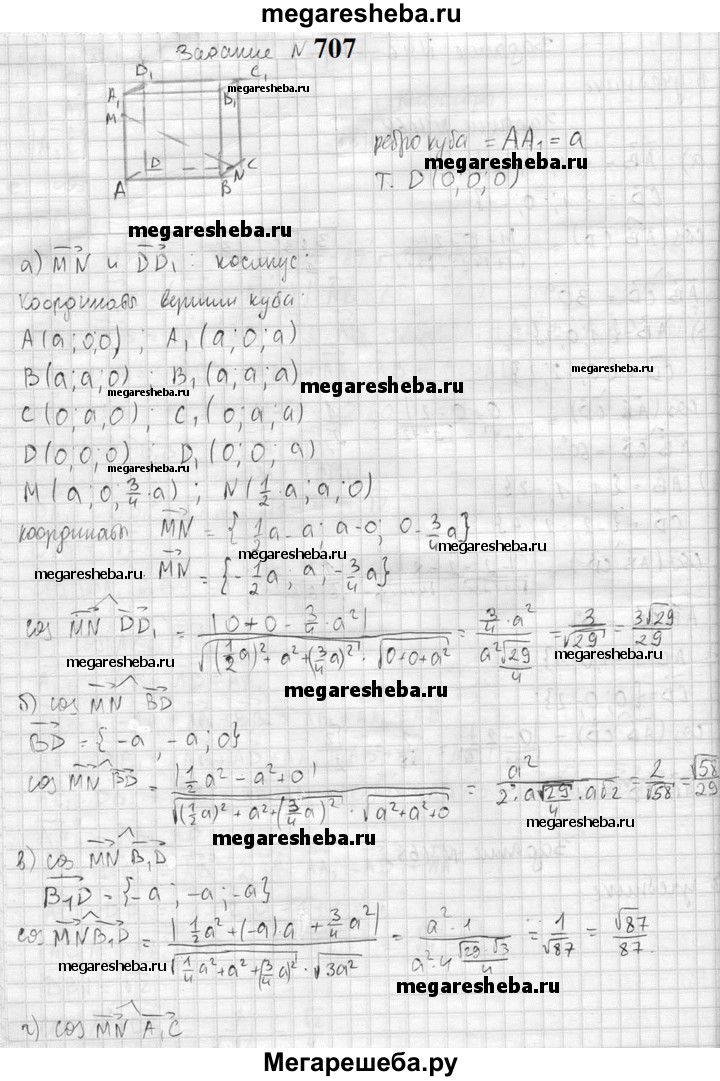 megaresheba.ru
Задание N 707
D₁ C₁
A₁ B₁
megaresheba.ru
M
D C
A B N
ребро куба = AA₁ = a
megaresheba.ru
т. D(0;0;0)
megaresheba.ru
а) MN и DD₁ : косинус:
Координаты вершин куба:
A(a;0;0) ; A₁(a;0;a)
B(a;a;0) ; B₁(a;a;a)
megaresheba.ru
megaresheba.ru
C(0;a,0) ; C₁(0;a;a)
D(0;0;0) ; D₁(0;0;a)
megaresheba.ru
M(a;0;3/4·a) ; N(1/2·a;a;0)
координаты MN = {1/2a-a; a-0; 0-3/4a}
megaresheba.ru megaresheba.ru
megaresheba.ru MN = {-1/2a; a; -3/4a}
cos MN DD₁ = |0+0-3/4·a²| / √((1/2a)²+a²+(3/4a)²)·√(0+0+a²) = 3/4·a² / (a²√29/4) = 3/√29 = 3√29/29
megaresheba.ru megaresheba.ru
megaresheba.ru
б) cos MN BD
BD = {-a; -a; 0}
cos MN BD = |1/2a²-a²+0| / √((1/2a)²+a²+(3/4a)²)·√(a²+a²+0) = a² / (2·a√29/4·a√2) = 2/√58 = √58/29
megaresheba.ru
megaresheba.ru
в) cos MN B₁D
B₁D = {-a; -a; -a}
cos MN B₁D = |1/2a²+(-a)a+3/4a²| / √(1/4a²+a²+(3/4a)²)·√3a² = a²·1 / (a²·4 √29·√3/4) = 1/√87 = √87/87.
megaresheba.ru
megaresheba.ru
г) cos MN A₁C
Мегарешеба.ру